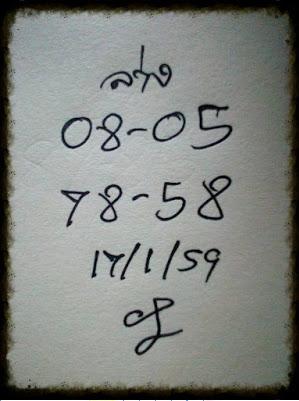 ล่าง
08-05
78-58
17/1/59